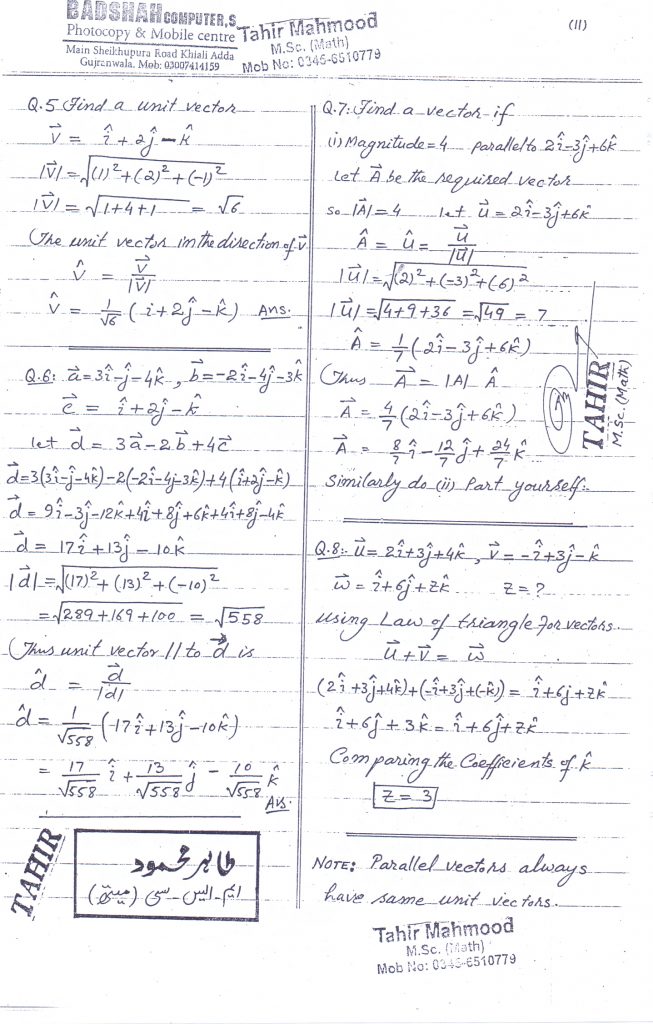 BADSHAH COMPUTER,S
Photocopy & Mobile centre
Main Sheikhupura Road Khiali Adda
Gujranwala. Mob: 03007414159
Tahir Mahmood
M.Sc. (Math)
Mob No: 0345-6510779
(11)
Q.5 Find a unit vector
v⃗ = î + 2ĵ − k̂
|v⃗| = √((1)² + (2)² + (-1)²)
|v⃗| = √(1+4+1) = √6
The unit vector in the direction of v⃗
v̂ = v⃗/|v⃗|
v̂ = 1/√6 (i + 2ĵ − k̂) Ans.
Q.6: a⃗ = 3î − ĵ − 4k̂ , b⃗ = −2î − 4ĵ − 3k̂
c⃗ = î + 2ĵ − k̂
let d⃗ = 3a⃗ − 2b⃗ + 4c⃗
d⃗ = 3(3î − ĵ − 4k̂) − 2(−2î − 4j − 3k̂) + 4(î + 2ĵ − k̂)
d⃗ = 9î − 3ĵ − 12k̂ + 4î + 8ĵ + 6k̂ + 4î + 8ĵ − 4k̂
d⃗ = 17î + 13ĵ − 10k̂
|d⃗| = √((17)² + (13)² + (−10)²)
= √(289 + 169 + 100) = √558
Thus unit vector // to d⃗ is
d̂ = d⃗/|d|
d̂ = 1/√558 (17î + 13ĵ − 10k̂)
= 17/√558 î + 13/√558 ĵ − 10/√558 k̂
Ans.
TAHIR
طاہر محمود
ایم۔ایس۔سی (میتھ)
Q.7: Find a vector if
(i) Magnitude = 4 parallel to 2î − 3ĵ + 6k̂
Let A⃗ be the required vector
so |A| = 4 let u⃗ = 2î − 3ĵ + 6k̂
Â = û = u⃗/|u⃗|
|u⃗| = √((2)² + (−3)² + (6)²
|u⃗| = √(4+9+36) = √49 = 7
Â = 1/7 (2î − 3ĵ + 6k̂)
Thus A⃗ = |A| Â
A⃗ = 4/7 (2î − 3ĵ + 6k̂)
A⃗ = 8/7 î − 12/7 ĵ + 24/7 k̂
Similarly do (ii) Part yourself:-
TAHIR
M.Sc. (Math)
Q.8: u⃗ = 2î + 3ĵ + 4k̂ , v⃗ = −î + 3ĵ − k̂
w⃗ = î + 6ĵ + zk̂ z = ?
using Law of triangle For vectors.
u⃗ + v⃗ = w⃗
(2î + 3ĵ + 4k̂) + (−î + 3ĵ + (−k̂)) = î + 6j + zk̂
î + 6ĵ + 3k̂ = î + 6ĵ + zk̂
Comparing the Coefficients of k̂
z = 3
NOTE: Parallel vectors always
have same unit vectors.
Tahir Mahmood
M.Sc. (Math)
Mob No: 0345-6510779